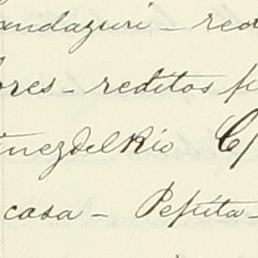 andazuri - red
ores - reditos fi
inezdelRio C/
casa - Pepita -